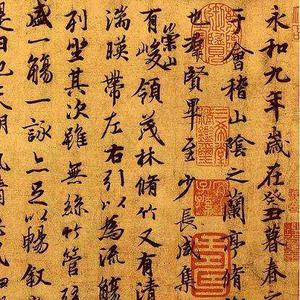 永和九年歲在癸丑暮春之
于會稽山陰之蘭亭脩
也羣賢畢至少長咸集
有崇山峻領茂林脩竹又有清
湍暎帶左右引以為流觴
列坐其次雖無絲竹管弦
盛一觴一詠亦足以暢叙
是日也天朗氣清